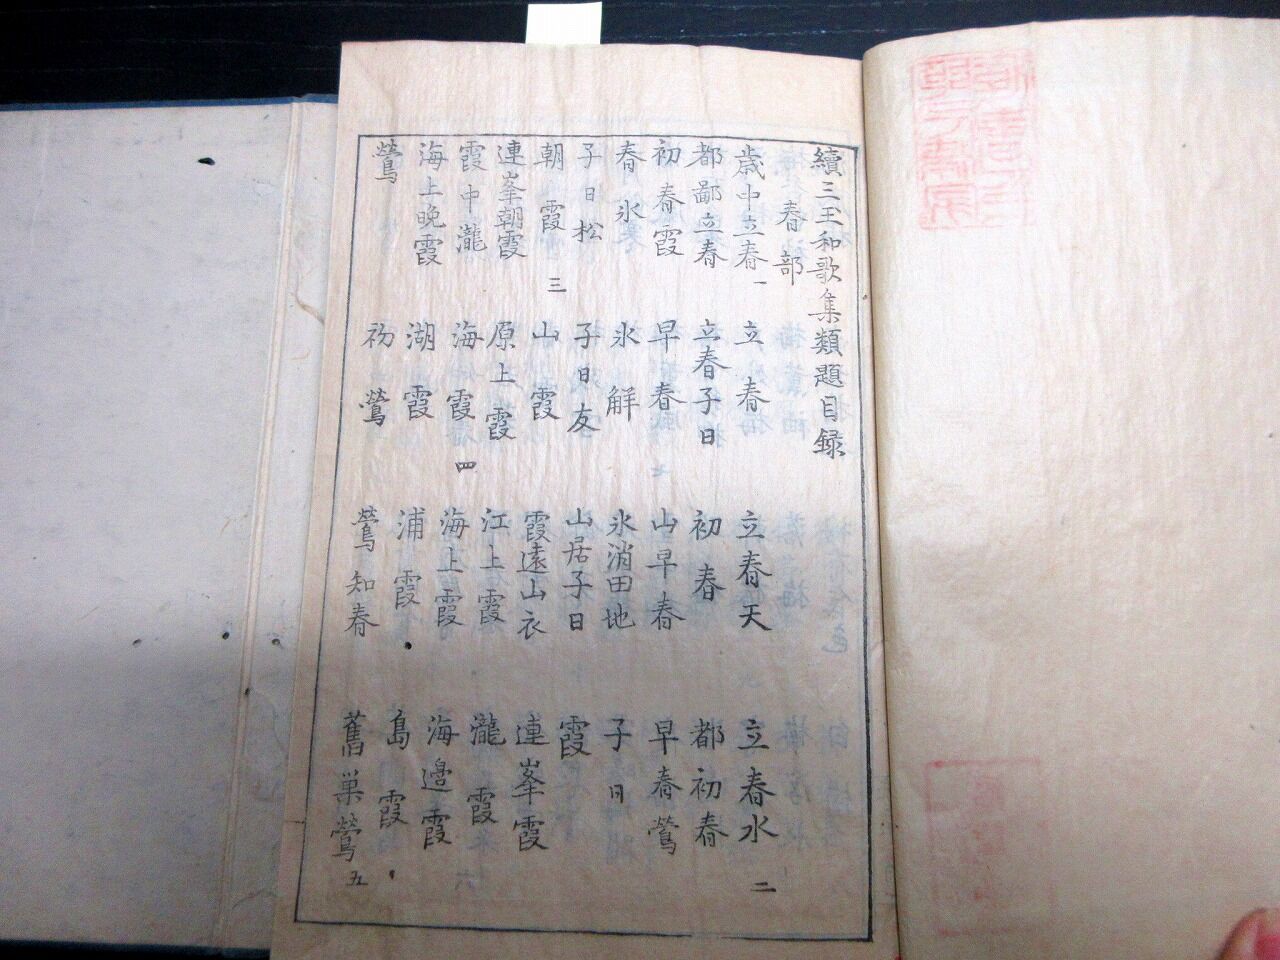 續三玉和歌集類題目録
春部
歳中立春一 立春 立春天 立春水二
都鄙立春 立春子日 初春 都初春
初春霞 早春 山早春 早春鶯
春氷 氷解 氷消田地 子日
子日松 子日友 山居子日 霞
朝霞三 山霞 霞遠山衣 連峯霞
連峯朝霞 原上霞 江上霞 瀧霞
霞中瀧 海霞四 海上霞 海邊霞
海上晩霞 湖霞 浦霞 島霞
鶯 初鶯 鶯知春 舊巣鶯五